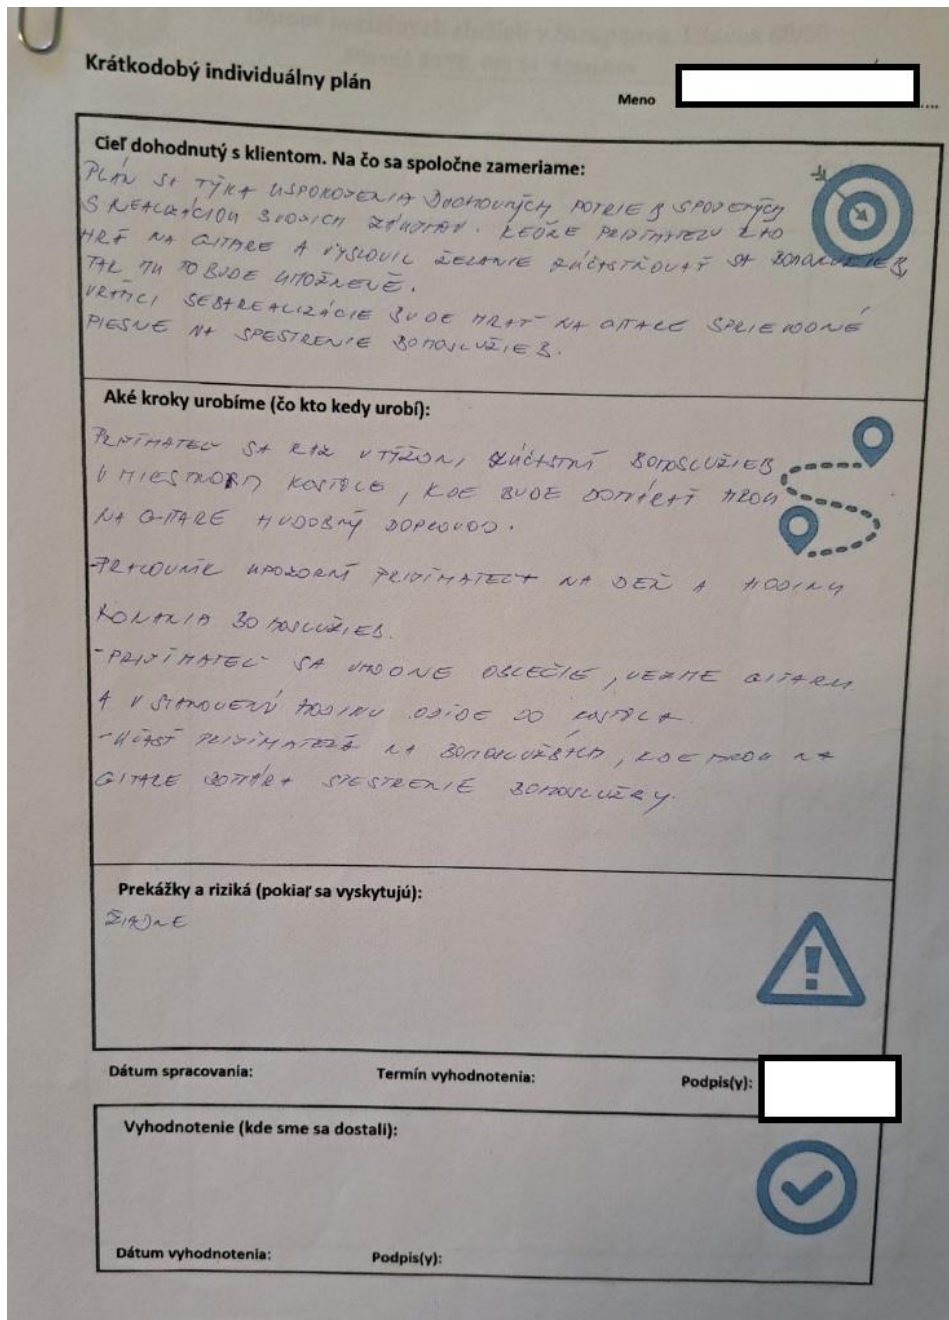 Krátkodobý individuálny plán
Meno
Cieľ dohodnutý s klientom. Na čo sa spoločne zameriame:
PLÁN SA TÝKA USPOKOJENIA DUCHOVNÝCH POTRIEB SPOJENÝCH
S REALIZÁCIOU SVOJICH ZÁUJMOV. KEĎŽE PRIJÍMATEĽ RÁD
HRÁ NA GITARE A VYSLOVIL ŽELANIE ZÚČASTŇOVAŤ SA BOHOSLUŽIEB,
TAK MU TO BUDE UMOŽNENÉ.
V RÁMCI SEBAREALIZÁCIE BUDE HRAŤ NA GITARE SPRIEVODNÉ
PIESNE NA SPESTRENIE BOHOSLUŽIEB.
Aké kroky urobíme (čo kto kedy urobí):
PRIJÍMATEĽ SA RAZ V TÝŽDNI ZÚČASTNÍ BOHOSLUŽIEB
V MIESTNOM KOSTOLE, KDE BUDE DOTVÁRAŤ HROU
NA GITARE HUDOBNÝ DOPROVOD.
-PRACOVNÍK UPOZORNÍ PRIJÍMATEĽA NA DEŇ A HODINU
KONANIA BOHOSLUŽIEB.
-PRIJÍMATEĽ SA VHODNE OBLEČIE, VEZME GITARU
A V STANOVENÚ HODINU ODÍDE DO KOSTOLA.
-ÚČASŤ PRIJÍMATEĽA NA BOHOSLUŽBÁCH, KDE HROU NA
GITARE DOTVÁRA SPESTRENIE BOHOSLUŽBY.
Prekážky a riziká (pokiaľ sa vyskytujú):
ŽIADNE
Dátum spracovania: Termín vyhodnotenia: Podpis(y):
Vyhodnotenie (kde sme sa dostali):
Dátum vyhodnotenia: Podpis(y):